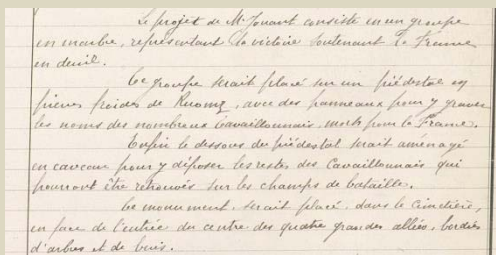 Le projet de Mr Jouart consiste en un groupe
en marbre, représentant la victoire soutenant la France
en deuil.
Ce groupe serait placé sur un piédestal en
pierres froides de Ruoms, avec des panneaux pour y graver
les noms des nombreux Cavaillonnais, morts pour la France.
Enfin le dessous du piédestal serait aménagé
en caveau pour y déposer les restes des Cavaillonnais qui
pourront être retrouvés sur les champs de bataille.
Ce monument serait placé, dans le cimetière,
en face de l'entrée, au centre des quatre grandes allées, bordées
d'arbres et de buis.